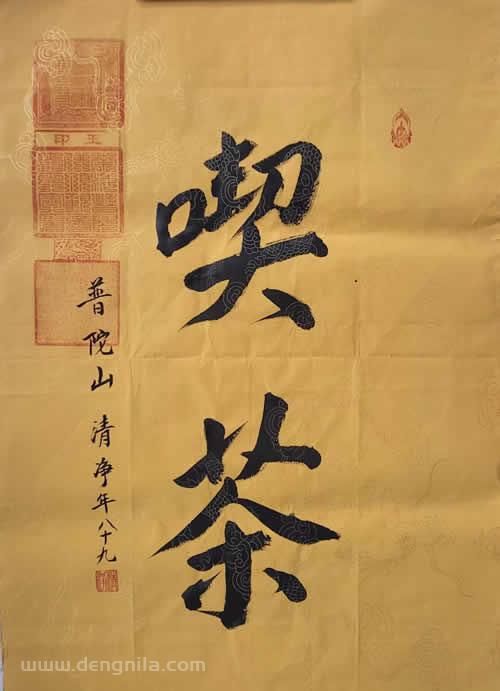 喫茶
普陀山 清净年八十九
玉印
www.dengnila.com